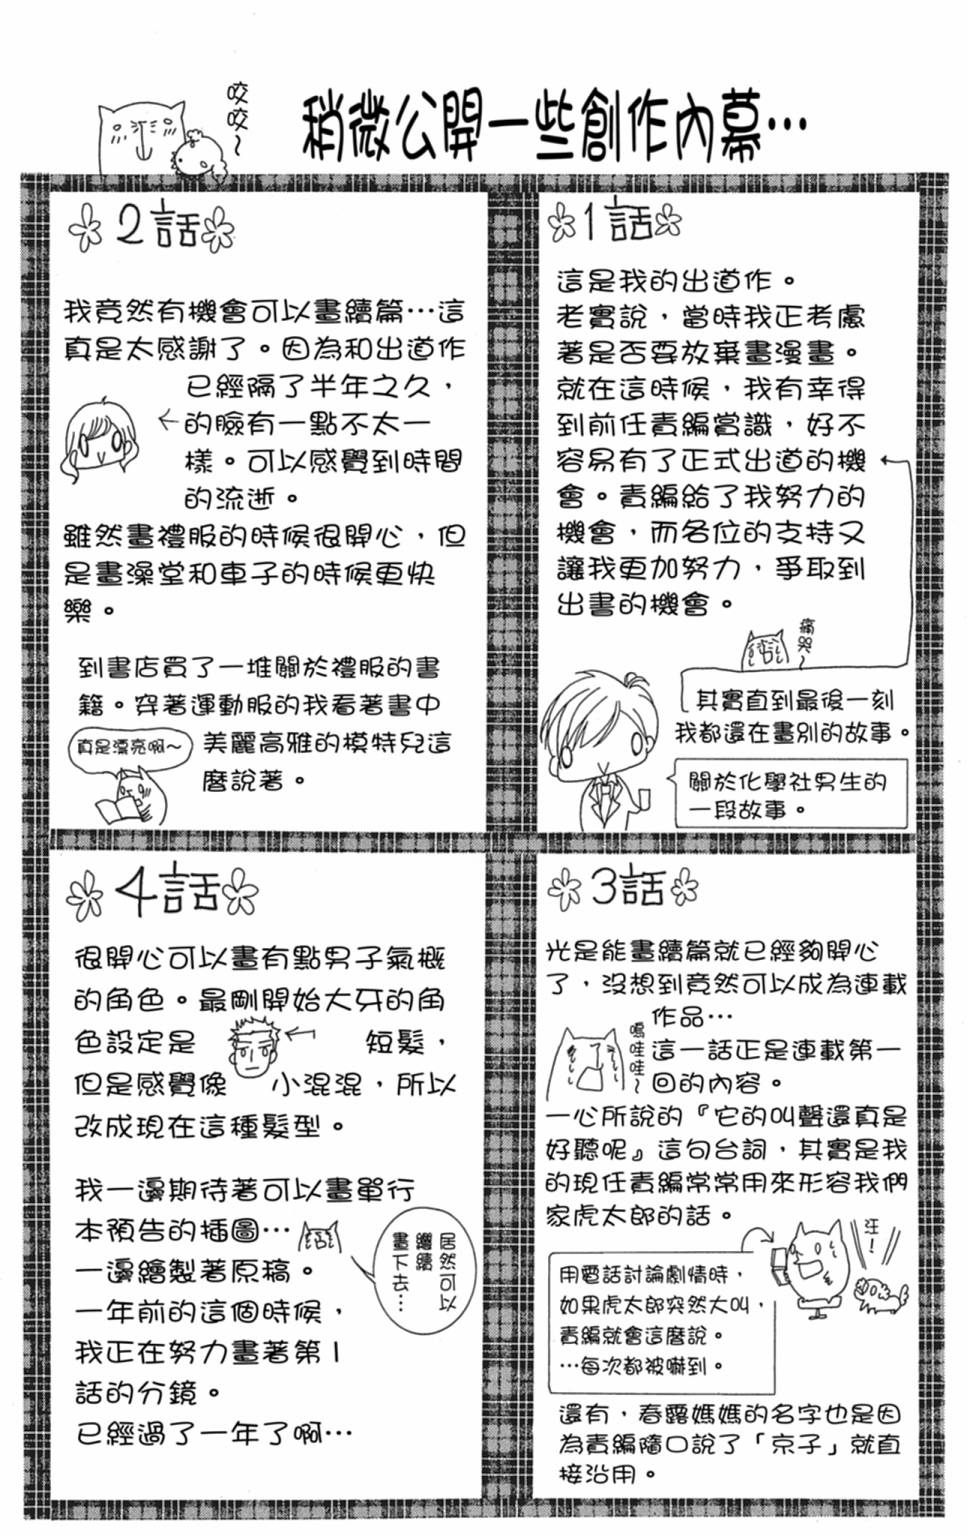 稍微公開一些創作內幕…
咬咬~
1話
這是我的出道作。
老實說，當時我正考慮
著是否要放棄畫漫畫。
就在這時候，我有幸得
到前任責編賞識，好不
容易有了正式出道的機
會。責編給了我努力的
機會，而各位的支持又
讓我更加努力，爭取到
出書的機會。
痛哭~
其實直到最後一刻
我都還在畫別的故事。
關於化學社男生的
一段故事。
2話
我竟然有機會可以畫續篇…這
真是太感謝了。因為和出道作
已經隔了半年之久，
←的臉有一點不太一
樣。可以感覺到時間
的流逝。
雖然畫禮服的時候很開心，但
是畫澡堂和車子的時候更快
樂。
到書店買了一堆關於禮服的書
籍。穿著運動服的我看著書中
美麗高雅的模特兒這
麼說著。
真是漂亮啊~
3話
光是能畫續篇就已經夠開心
了，沒想到竟然可以成為連載
作品…
這一話正是連載第一
回的內容。
嗚哇哇~
一心所說的『它的叫聲還真是
好聽呢』這句台詞，其實是我
的現任責編常常用來形容我們
家虎太郎的話。
汪！
用電話討論劇情時，
如果虎太郎突然大叫，
責編就會這麼說。
…每次都被嚇到。
還有，春露媽媽的名字也是因
為責編隨口說了「京子」就直
接沿用。
4話
很開心可以畫有點男子氣概
的角色。最剛開始大牙的角
色設定是 ← 短髮，
但是感覺像 小混混，所以
改成現在這種髮型。
我一邊期待著可以畫單行
本預告的插圖…
一邊繪製著原稿。
一年前的這個時候，
我正在努力畫著第1
話的分鏡。
已經過了一年了啊…
居然可以
繼續
畫下去…